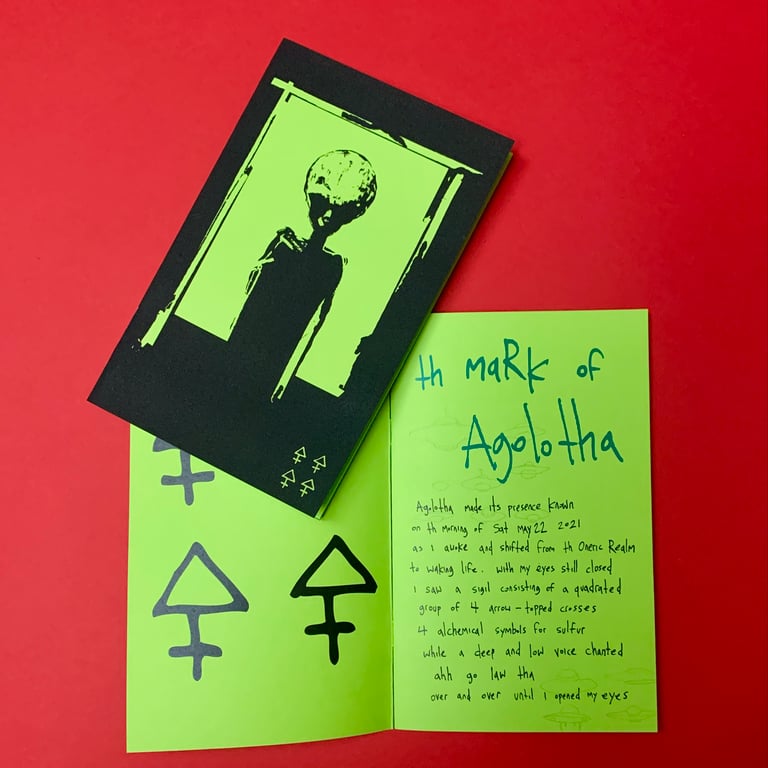 th maRk of
Agolotha
Agolotha made its presence known
on th morning of Sat May 22 2021
as I awoke and shifted from th Oneric Realm
to waking life. with my eyes still closed
I saw a sigil consisting of a quadrated
group of 4 arrow-topped crosses
4 alchemical symbols for sulfur
while a deep and low voice chanted
ahh go law tha
over and over until I opened my eyes